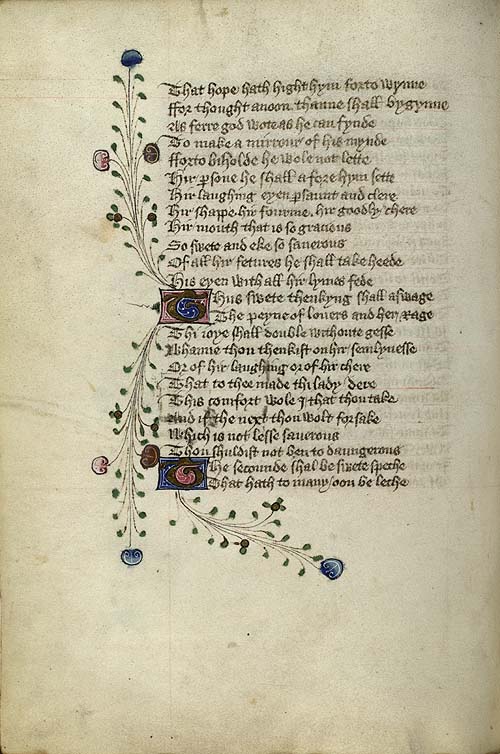 That hope hath hight hym forto wynne
ffor thought anoon thanne shall bygynne
As ferre god wote as he can fynde
To make a mirrour of his mynde
fforto biholde he wole not lette
Hir psone he shall a fore hym sette
Hir laughing eyen psaunt and clere
Hir shape hir fourme hir goodly chere
Hir mouth that is so gracious
So swete and eke so saverous
Of all hir fetures he shall take heede
His eyen with all hir lymes fede
Thus swete thenkyng shall aswage
The peyne of lovers and her rage
Thi ioye shall double withoute gesse
Whanne thou thenkist on hir semlynesse
Or of hir laughing or of hir chere
That to thee made thi lady dere
This comfort wole I that thou take
And if the next thou wolt forsake
Which is not lesse saverous
Thou shuldist not ben to daungerous
The secounde shal be swete speche
That hath to many oon be leche